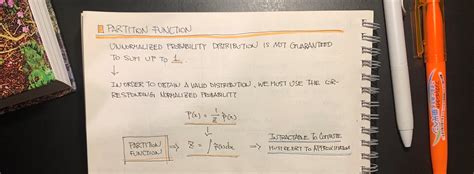 PARTITION FUNCTION
UNNORMALIZED PROBABILITY DISTRIBUTION IS NOT GUARANTEED
TO SUM UP TO 1.
↓
IN ORDER TO OBTAIN A VALID DISTRIBUTION, WE MUST USE THE COR-
RESPONDING NORMALIZED PROBABILITY
p(x) = 1/Z p̃(x)
↓
PARTITION FUNCTION ⇒ Z = ∫ p̃(x)dx ⇒ INTRACTABLE TO COMPUTE
MUST RESORT TO APPROXIMATION